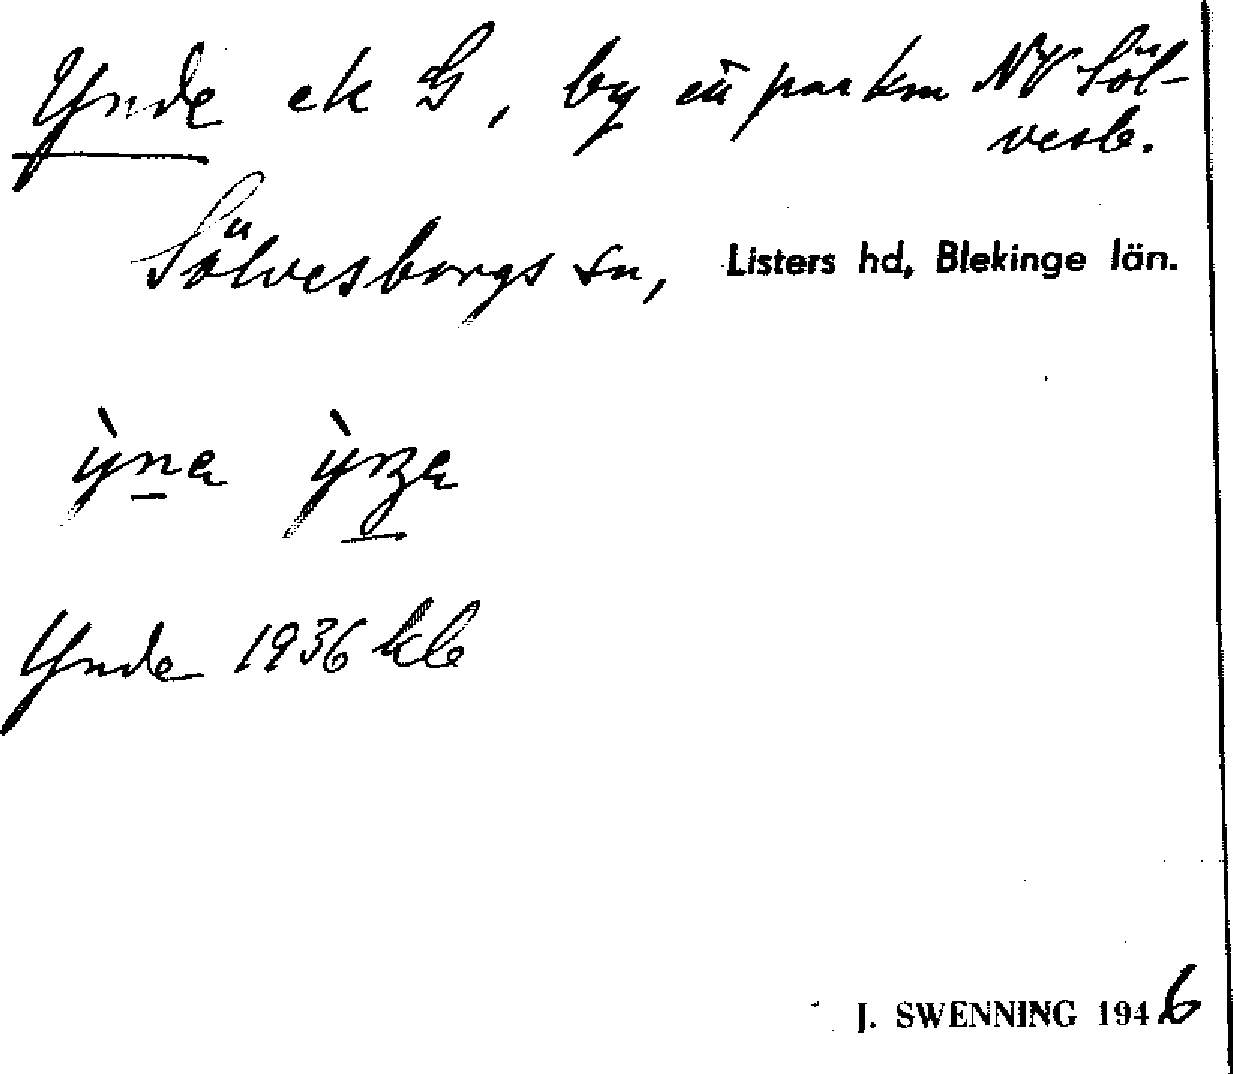 Ynde ek G, by ett par km NV Söl-
vesb.
Sölvesborgs sn, Listers hd, Blekinge län.
Ynde 1936 kb
J. SWENNING 1946